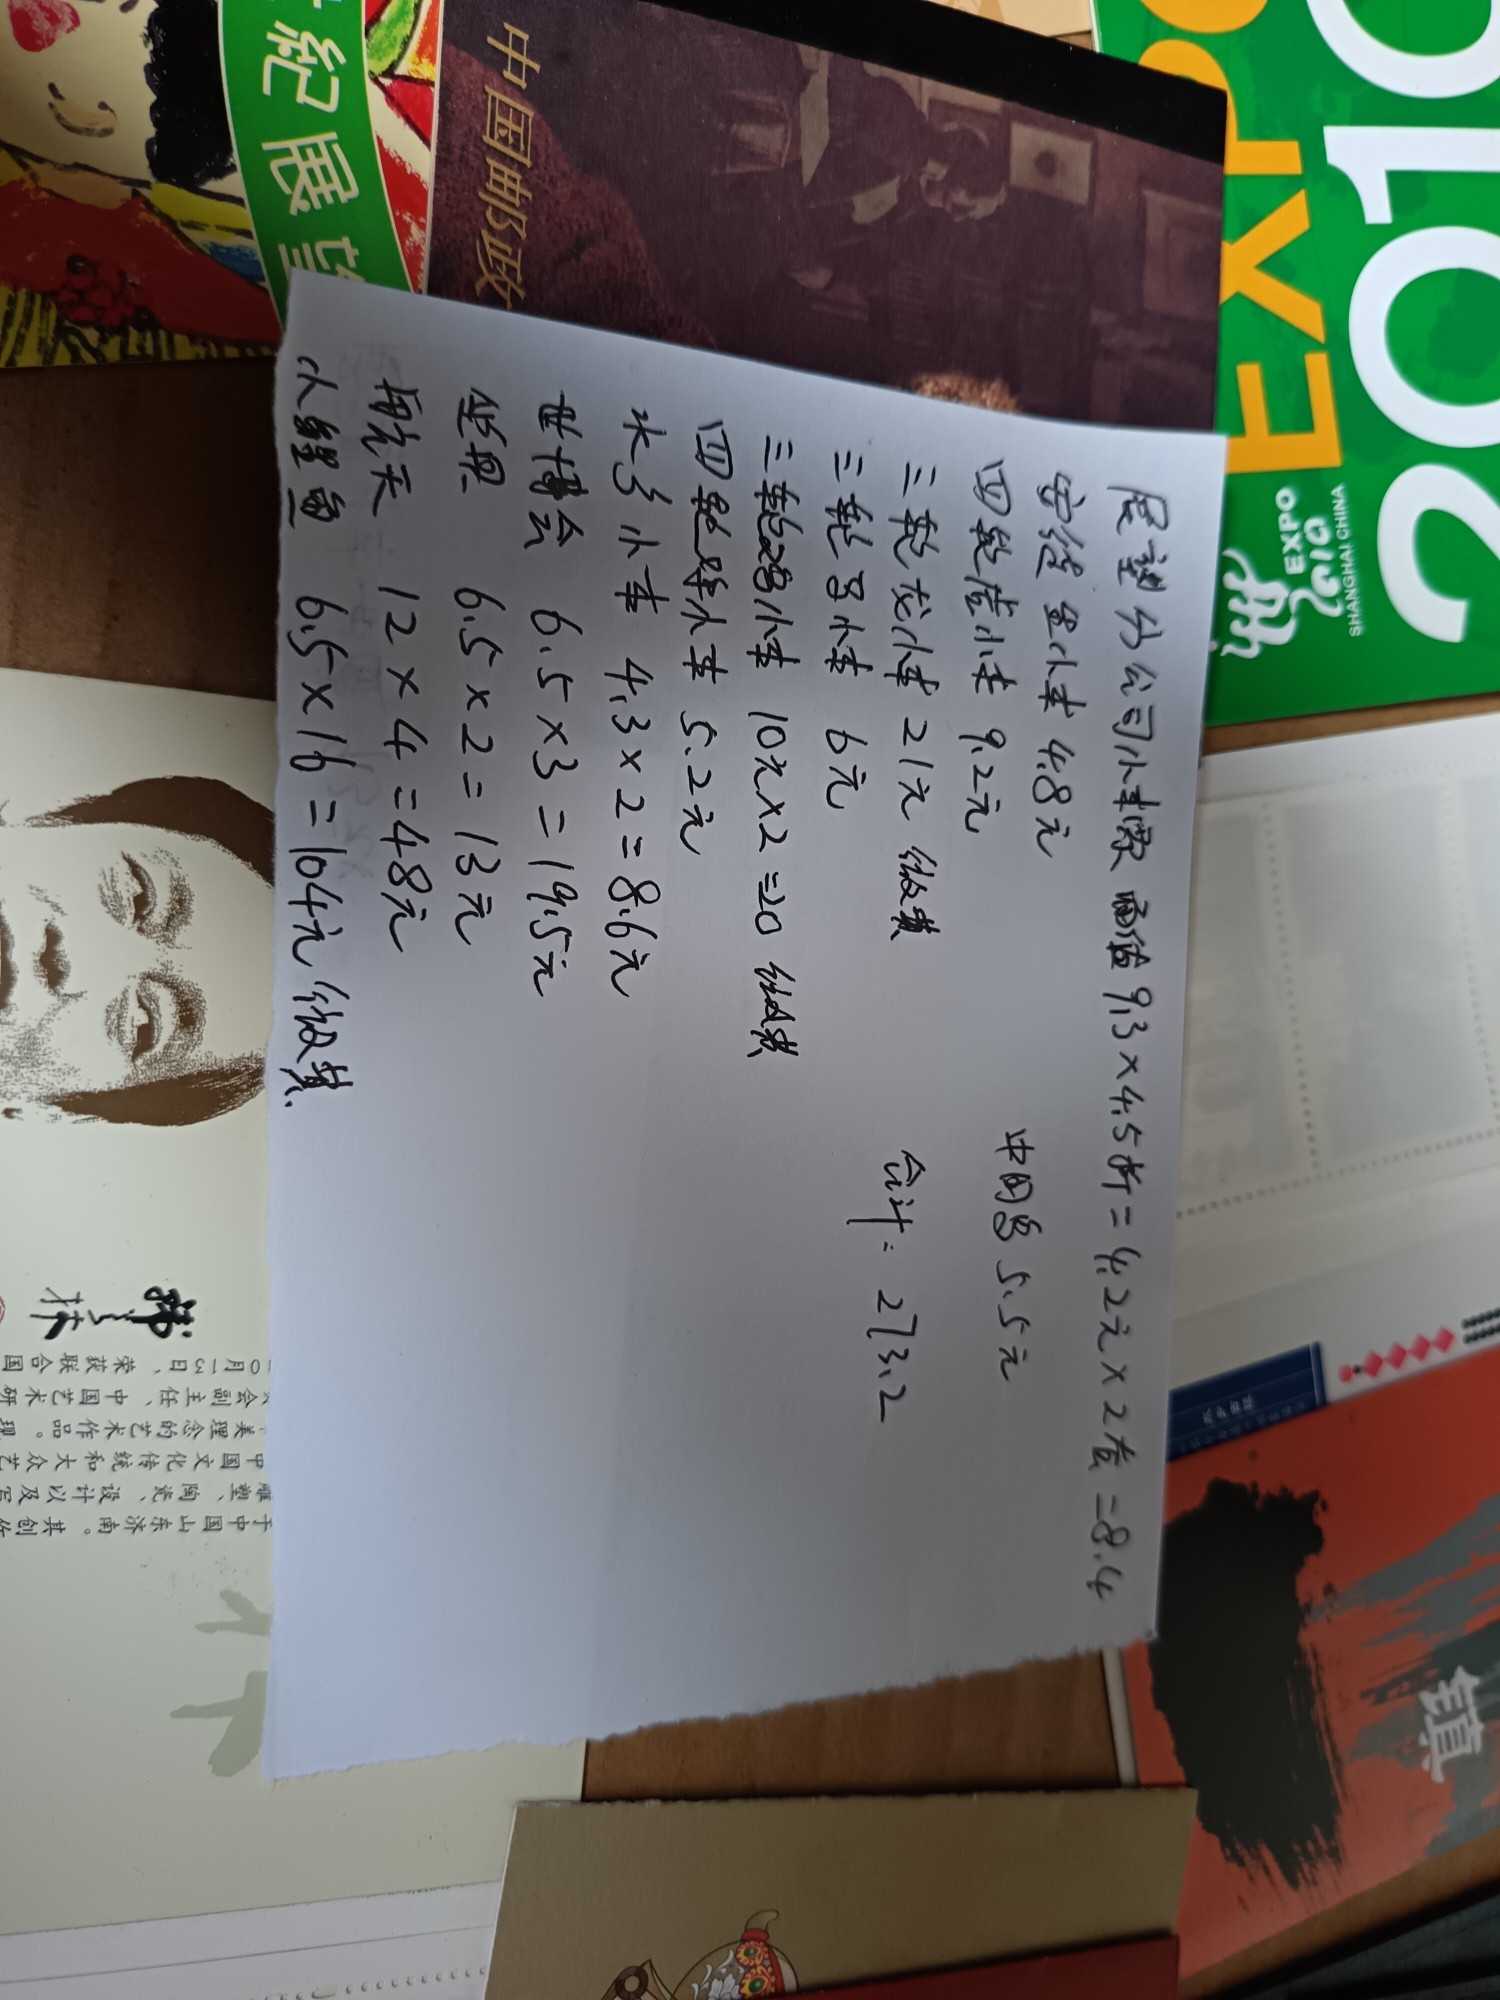 展望分公司小本票 面值9.3×4.5折=4.2元×2本=8.4
宝经金小本 4.8元
四轮 小本 9.2元
三轮龙小本 21元 微黄
三轮马小本 6元
三轮鸡小本 10元×2=20 微黄
四轮 小本 5.2元
水乡小本 4.3×2=8.6元
世博会 6.5×3=19.5元
6.5×2=13元
航天 12×4=48元
小鲤鱼 6.5×16=104元 微黄.
中国鸟 5.5元
合计: 273.2
纪展望
中国邮政
EXPO
2010
EXPO
2010
SHANGHAI CHINA
韩美林
〇月一三日、荣获联合国
会副主任、中国艺术研
美理念的艺术作品。理
中国文化传统和大众艺
雕塑、陶瓷、设计以及写
于中国山东济南。其创作